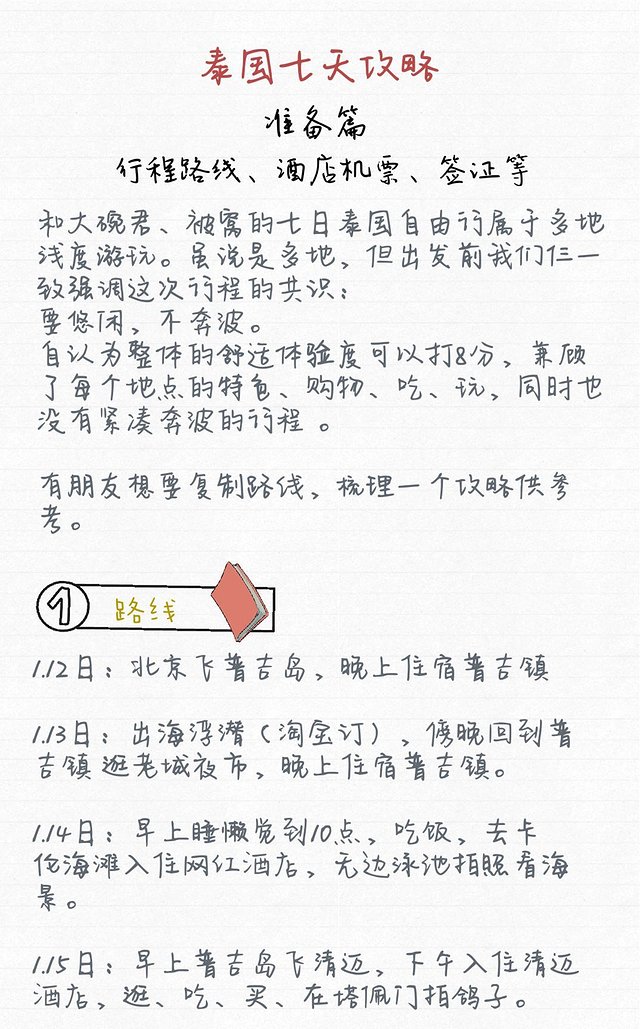 泰国七天攻略
准备篇
行程路线、酒店机票、签证等
和大碗君、被窝的七日泰国自由行属于多地
浅度游玩。虽说是多地，但出发前我们仨一
致强调这次行程的共识：
要悠闲，不奔波。
自认为整体的舒适体验度可以打8分，兼顾
了每个地点的特色、购物、吃、玩，同时也
没有紧凑奔波的行程。
有朋友想要复制路线，梳理一个攻略供参
考。
1 路线
1.12日：北京飞普吉岛，晚上住宿普吉镇
1.13日：出海浮潜（淘金订），傍晚回到普
吉镇逛老城夜市，晚上住宿普吉镇。
1.14日：早上睡懒觉到10点，吃饭，去卡
伦海滩入住网红酒店，无边泳池拍照看海
景。
1.15日：早上普吉岛飞清迈，下午入住清迈
酒店，逛、吃、买、在塔佩门拍鸽子。